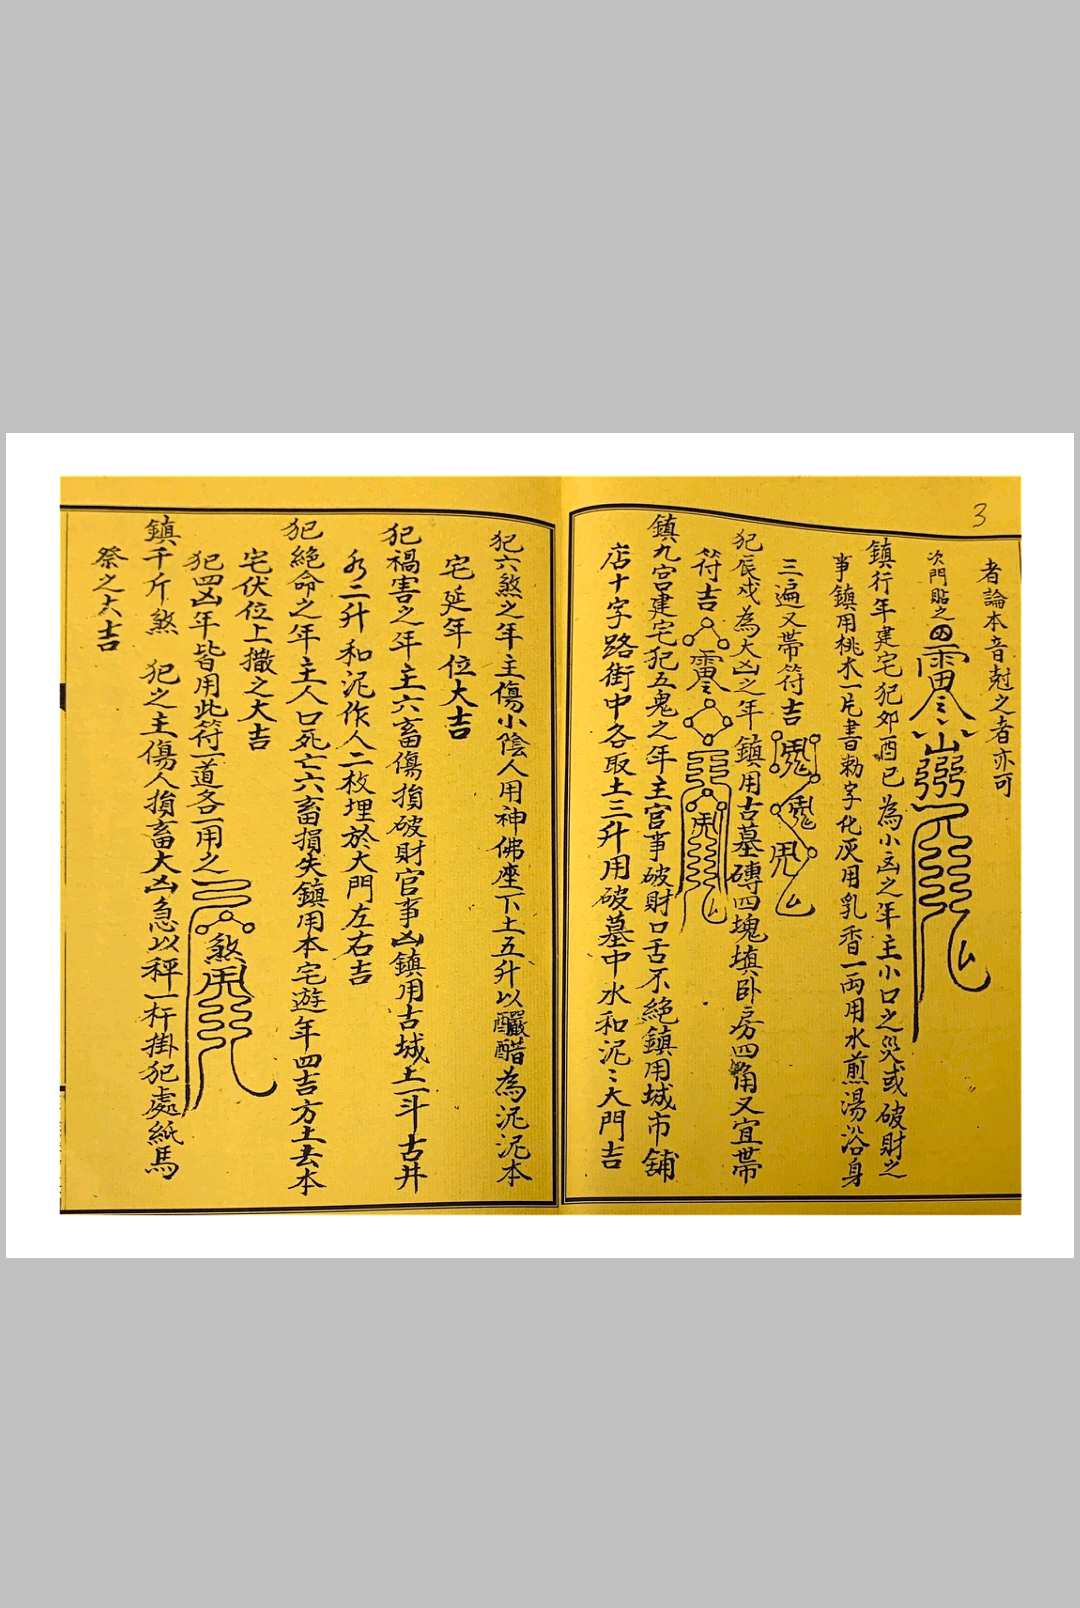 3
者論本音尅之者亦可
次門貼之
鎮行年建宅犯卯酉巳為小凶之年主小口之災或破財之
事鎮用桃木一片書勅字化灰用乳香一兩用水煎湯浴身
三遍又帶符吉
犯辰戍為大凶之年鎮用古墓磚四塊填卧房四角又宜帶
符吉
鎮九宮建宅犯五鬼之年主官事破財口舌不絕鎮用城市舖
店十字路街中各取土三升用破墓中水和泥〻大門吉
犯六煞之年主傷小陰人用神佛座下土五升以釅醋為泥泥本
宅延年位大吉
犯禍害之年主六畜傷損破財官事凶鎮用古城土一斗古井
水二升和泥作人二枚埋於大門左右吉
犯絕命之年主人口死亡六畜損失鎮用本宅遊年四吉方土去本
宅伏位上撒之大吉
犯四凶年皆用此符一道各一用之
鎮千斤煞 犯之主傷人損畜大凶急以秤一杆掛犯處紙馬
祭之大吉